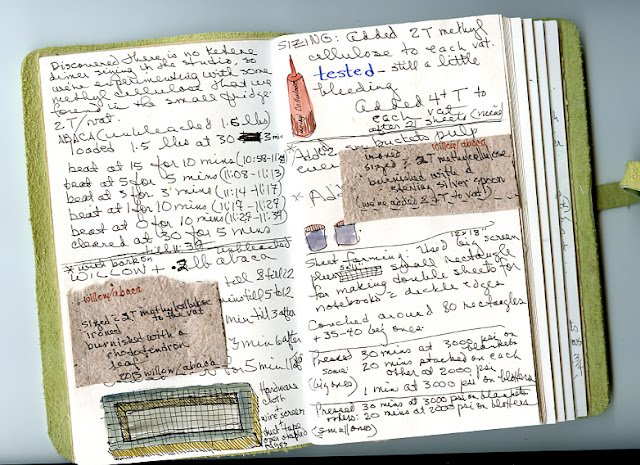 Discovered there is no ketene
dimer sizing in the studio, so
we're experimenting with some
methyl cellulose that we
found in the small fridge
2 T / vat.
ABACA (unbleached 1.5 lbs)
loaded 1.5 lbs at 30 3 min
beat at 15 for 10 mins (10:58-11:08)
beat at 5 for 5 mins (11:08-11:13)
beat at 3 for 3 mins (11:14-11:17)
beat at 1 for 10 mins (11:17-11:27)
beat at 0 for 10 mins (11:27-11:37)
cleared at 30 for 5 mins
till 11:39
*with bark on unbleached
WILLOW + .2 lb abaca
till 8 till 22
min till 5 to 12
min till 3 after
min 6 after
for 5 min
willow/abaca
sized = 2T methylcellulose
to the vat
ironed
burnished with a
rhododendron
leaf
2015 willow/abaca
Hardware
cloth
+
wire screen
duct tape
over stapled
edges
SIZING: added 2 T methyl
cellulose to each vat.
tested - still a little
bleeding
Added 4+ T to
each vat
after 2 sheets
* Added 2 buckets pulp
* Ad
willow/abaca
ironed
sized = 2T methylcellulose
burnished with a
sterling silver spoon
(we've added 2+T to vat!)
12" x 18"
Sheet forming: Used big screen
plus 5x4" small rectangle
for making double sheets for
notebooks 2 deckle edges
Couched around 80 rectangles
+ 35-40 big ones.
Pressed 30 mins at 3000 psi on
blankets
some: 20 mins stacked on each
other at 2000 psi
(big ones) 1 min at 3000 psi on blotters
Pressed 30 mins at 3000 psi on blankets
others: 20 mins at 2000 psi on blotters
(small ones)